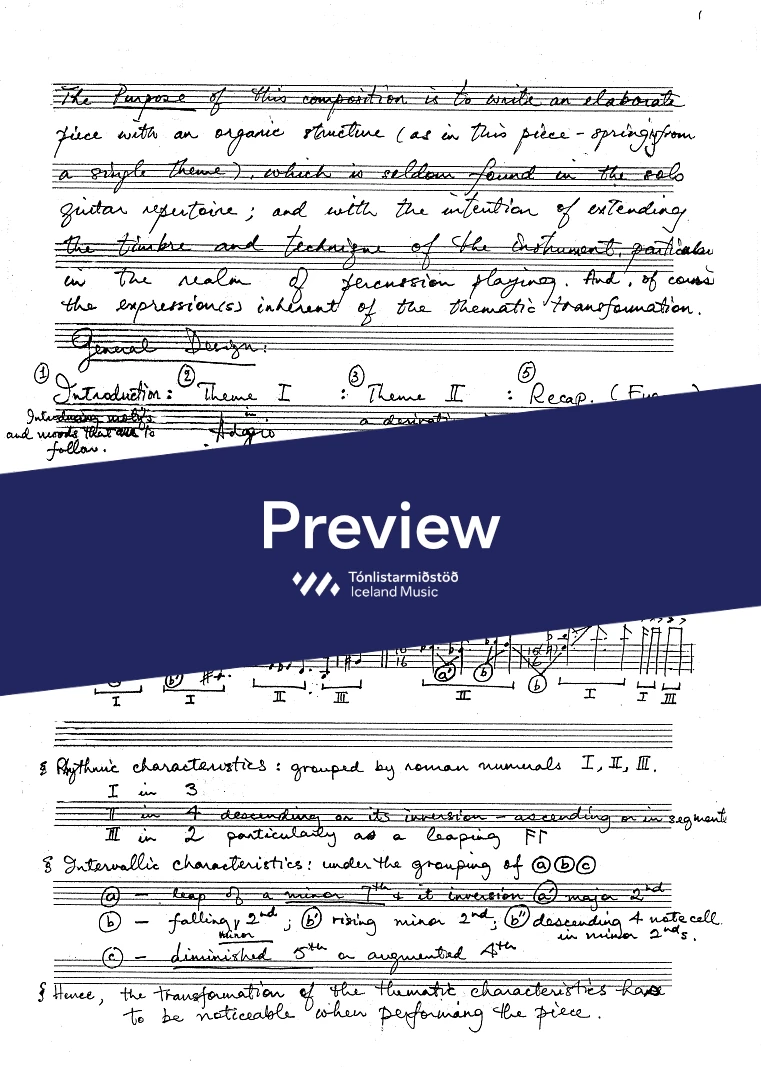 1
The Purpose of this composition is to write an elaborate
piece with an organic structure (as in this piece - springing from
a single theme), which is seldom found in the solo
guitar repertoire; and with the intention of extending
the timbre and technique of the instrument, particular
in the realm of percussion playing. And, of course
the expression(s) inherent of the thematic transformation.
General Design:
① ② ③ ⑤
Introduction: Theme I : Theme II : Recap. (
Introducing
and moods that are to
follow.
in
Adagio
a
Preview
Tónlistarmiðstöð
Iceland Music
16 16
a' b b
b'
I I II III II I I III
§ Rhythmic characteristics: grouped by roman numerals I, II, III.
I in 3
II in 4 descending or its inversion - ascending or in segments
III in 2 particularly as a leaping
§ Intervallic characteristics: under the grouping of ⓐ ⓑ ⓒ
ⓐ - leap of a minor 7th & it inversion (a') major 2nd
ⓑ - falling minor 2nd; (b') rising minor 2nd; (b'') descending 4 note cell
in minor 2nds.
ⓒ - diminished 5th or augmented 4th
§ Hence, the transformation of the thematic characteristics has
to be noticeable when performing the piece.